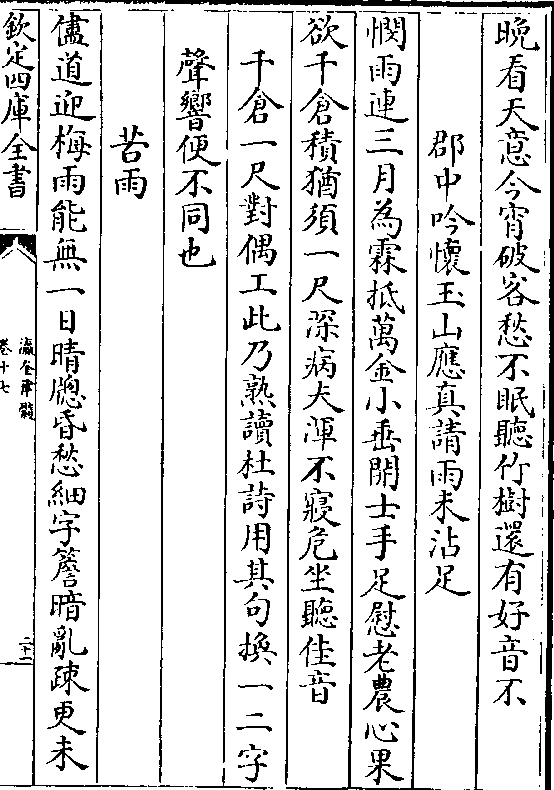 晚看天意今宵破客愁不眠聽竹樹還有好音不
郡中吟懷玉山應真請雨未沾足
憫雨連三月為霖抵萬金小垂開士手足慰老農心果
欲千倉積猶須一尺深病夫渾不寢危坐聽佳音
千倉一尺對偶工此乃熟讀杜詩用其句換一二字
聲響便不同也
苦雨
儘道迎梅雨能無一日晴牕昏愁細字簷暗亂疎更未
欽定四庫全書
瀛奎律髓
卷十七
二十二